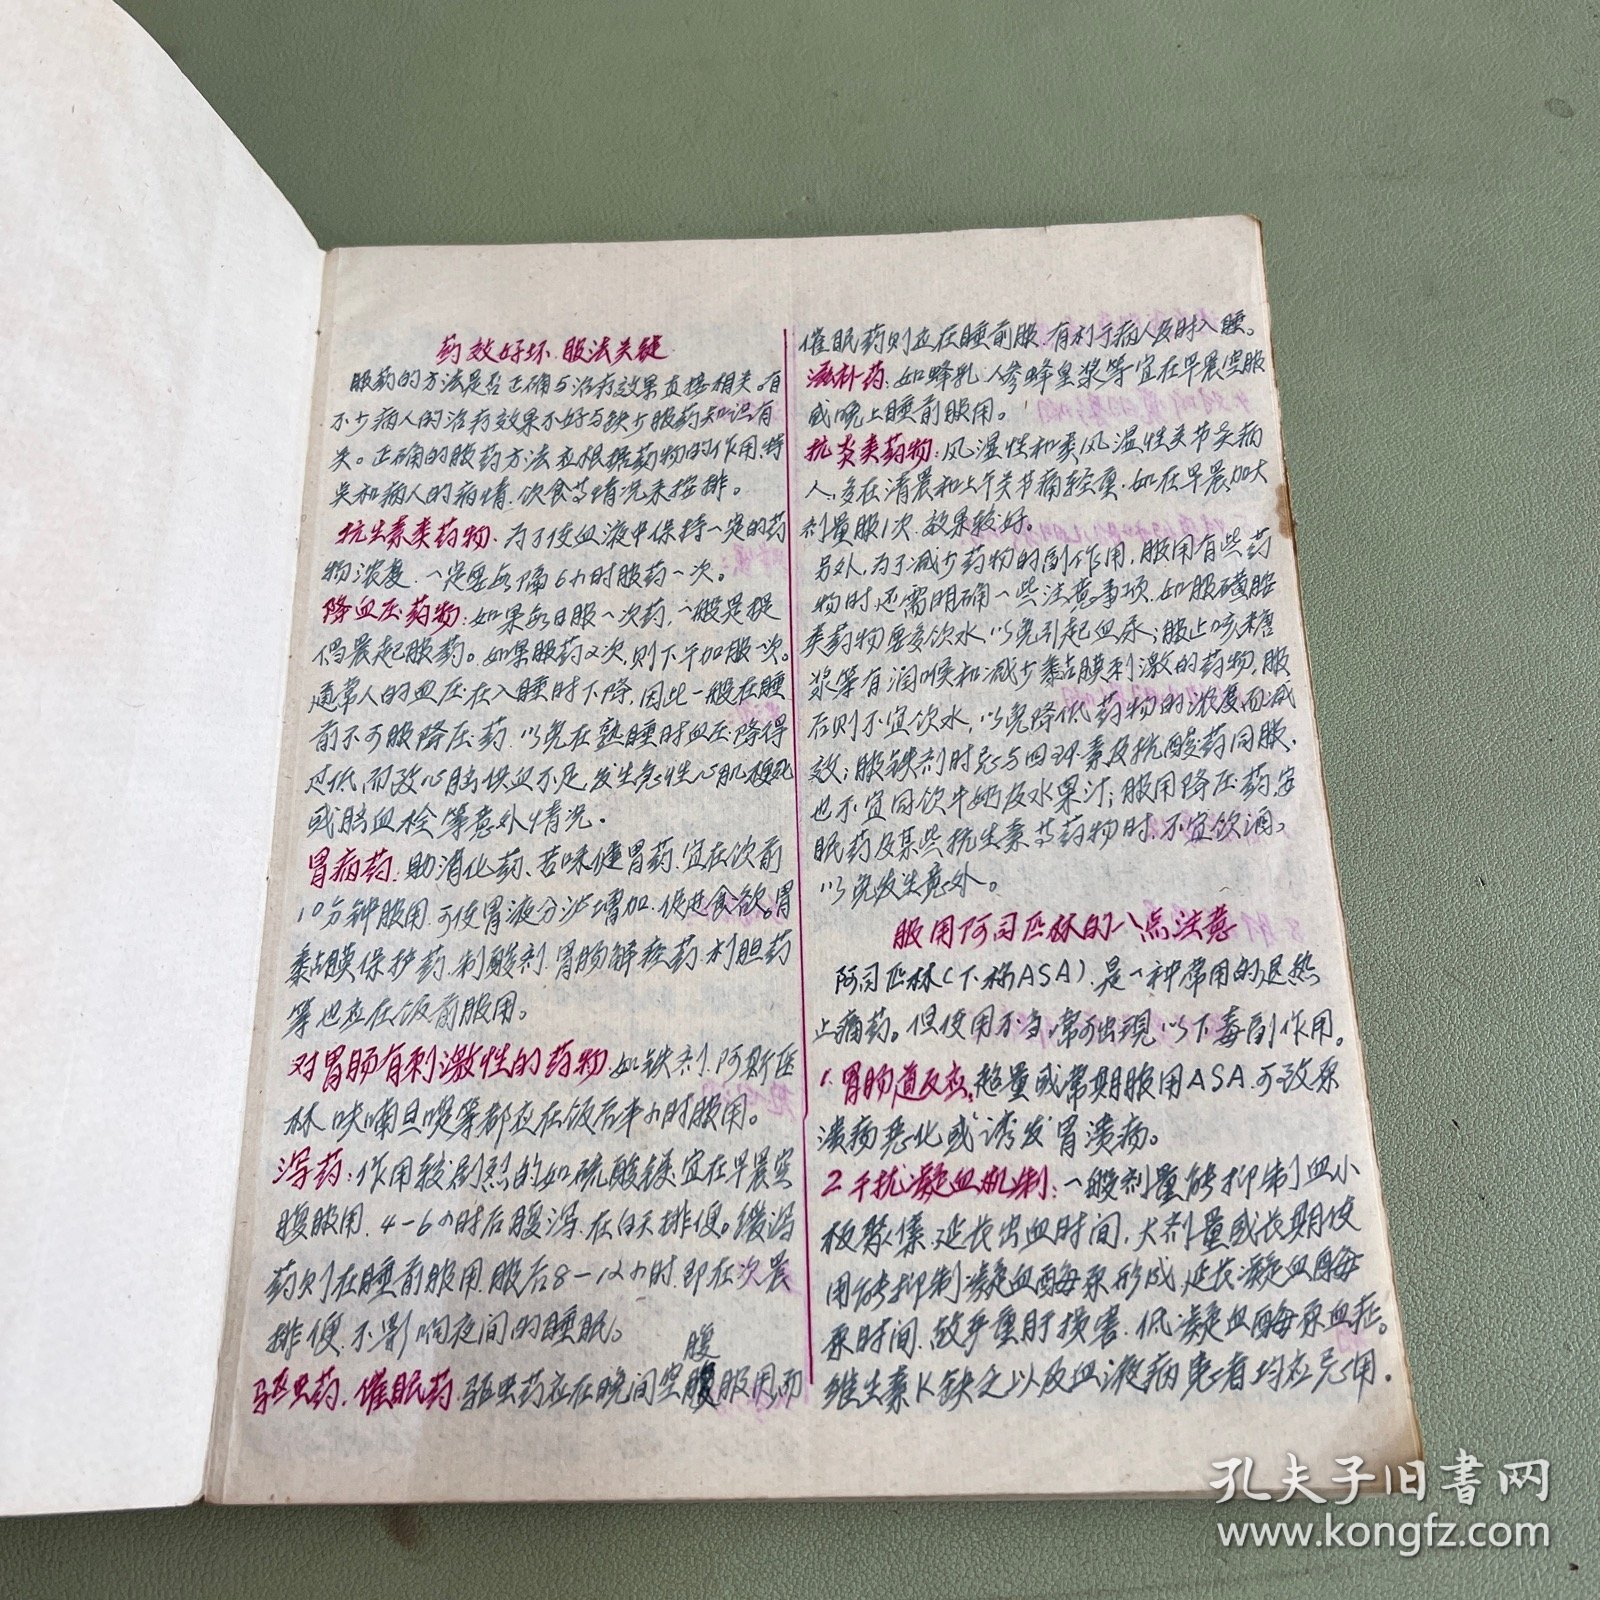 药效好坏、服法关键
服药的方法是否正确与治疗效果直接相关。有
不少病人的治疗效果不好与缺少服药知识有
关。正确的服药方法应根据药物的作用、特
点和病人的病情、饮食等情况来安排。
抗生素类药物、为了使血液中保持一定的药
物浓度、一定要每隔6小时服药一次。
降血压药物：如果每日服一次药，一般是提
倡晨起服药。如果服药2次，则下午加服一次。
通常人的血压在入睡时下降，因此一般在睡
前不可服降压药，以免在熟睡时血压降得
过低，而致心脑供血不足，发生急性心肌梗死
或脑血栓等意外情况。
胃病药：助消化药、苦味健胃药、宜在饮前
10分钟服用，可使胃液分泌增加、促进食欲。胃
黏膜保护药、制酸剂、胃肠解痉药、利胆药
等也应在饭前服用。
对胃肠有刺激性的药物、如铁剂、阿斯匹
林、吲哚旦啶等都应在饭后半小时服用。
泻药：作用较剧烈的如硫酸镁宜在早晨空
腹服用，4-6小时后腹泻、在白天排便。缓泻
药则在睡前服用，服后8-12小时，即在次晨
排便、不影响夜间的睡眠。
腹
驱虫药、催眠药、驱虫药应在晚间空服用，而
催眠药则应在睡前服、有利于病人及时入睡。
滋补药：如蜂乳、人参蜂皇浆等宜在早晨空服
或晚上睡前服用。
抗炎类药物：风湿性和类风湿性关节炎病
人，多在清晨和上午关节痛轻重，如在早晨加大
剂量服1次、效果较好。
另外，为了减少药物的副作用，服用有些药
物时，还需明确一些注意事项、如服磺胺
类药物要多饮水，以免引起血尿；服止咳糖
浆等有润喉和减少黏膜刺激的药物，服
后则不宜饮水，以免降低药物的浓度而减
效；服铁剂时忌与四环素及抗酸药同服、
也不宜同饮牛奶及水果汁；服用降压药、安
眠药及某些抗生素等药物时、不宜饮酒，
以免发生意外。
服用阿司匹林的八点注意
阿司匹林(下称ASA)、是一种常用的退热
止痛药。但使用不当，常可出现以下毒副作用。
1.胃肠道反应，超量或常期服用ASA，可致原
溃疡恶化或诱发胃溃疡。
2.干扰凝血机制：一般剂量能抑制血小
板聚集、延长出血时间，大剂量或长期使
用能抑制凝血酶原形成，延长凝血酶
原时间、故严重肝损害、低凝血酶原血症。
维生素K缺乏以及血液病患者均应忌用。
孔夫子旧书网
www.kongfz.com